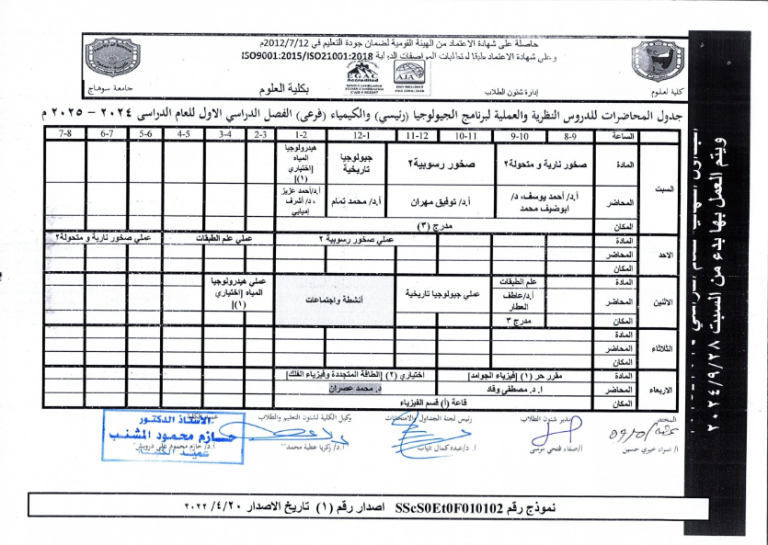 حاصلة على شهادة الاعتماد من الهيئة القومية لضمان جودة التعليم في 2012/7/12م
وعلى شهادة الاعتماد طبقا لمتطلبات المواصفات الدولية ISO9001:2015/ISO21001:2018
EGAC
AJA
كلية العلوم
إدارة شئون الطلاب
بكلية العلوم
جامعة سوهاج
جدول المحاضرات للدروس النظرية والعملية لبرنامج الجيولوجيا (رئيسي) والكيمياء (فرعى) الفصل الدراسي الاول للعام الدراسى ٢٠٢٤ – ٢٠٢٥ م
الساعة 8-9 9-10 10-11 11-12 12-1 1-2 2-3 3-4 4-5 5-6 6-7 7-8
السبت
المادة صخور نارية و متحولة٢ صخور رسوبية٢ جيولوجيا تاريخية هيدرولوجيا المياه [اختياري (١)]
المحاضر أ.د/ أحمد يوسف، د/ ابوضيف محمد أ.د/ توفيق مهران أ.د/ محمد تمام أ.د/أحمد عزيز ، د/ أشرف إمبابي
المكان مدرج (٣)
الاحد
المادة عملي صخور رسوبية ٢ عملي علم الطبقات عملي صخور نارية و متحولة٢
المحاضر
المكان
الاثنين
المادة علم الطبقات عملي جيولوجيا تاريخية أنشطة واجتماعات عملي هيدرولوجيا المياه [اختياري (١)]
المحاضر أ.د/عاطف العطار
المكان مدرج ٣
الثلاثاء
المادة
المحاضر
المكان
الاربعاء
المادة مقرر حر (١) [فيزياء الجوامد] اختياري (٢) [الطاقة المتجددة وفيزياء الفلك]
المحاضر ا. د. مصطفى وقاد د. محمد عصران
المكان قاعة (أ) قسم الفيزياء
ويتم العمل بها بدء من السبت ٢٠٢٤/٩/٢٨
المختص مدير شئون الطلاب رئيس لجنة الجداول والامتحانات وكيل الكلية لشئون التعليم والطلاب
أ/ اسراء خيري حسين أ/صفاء فتحي موسى أ.د/ زكريا عطية محمد
الاستاذ الدكتور
حازم محمود المشنب
عميد الكلية
نموذج رقم SScS0Et0F010102 اصدار رقم (١) تاريخ الاصدار ٢٠٢٢/٤/٢٠